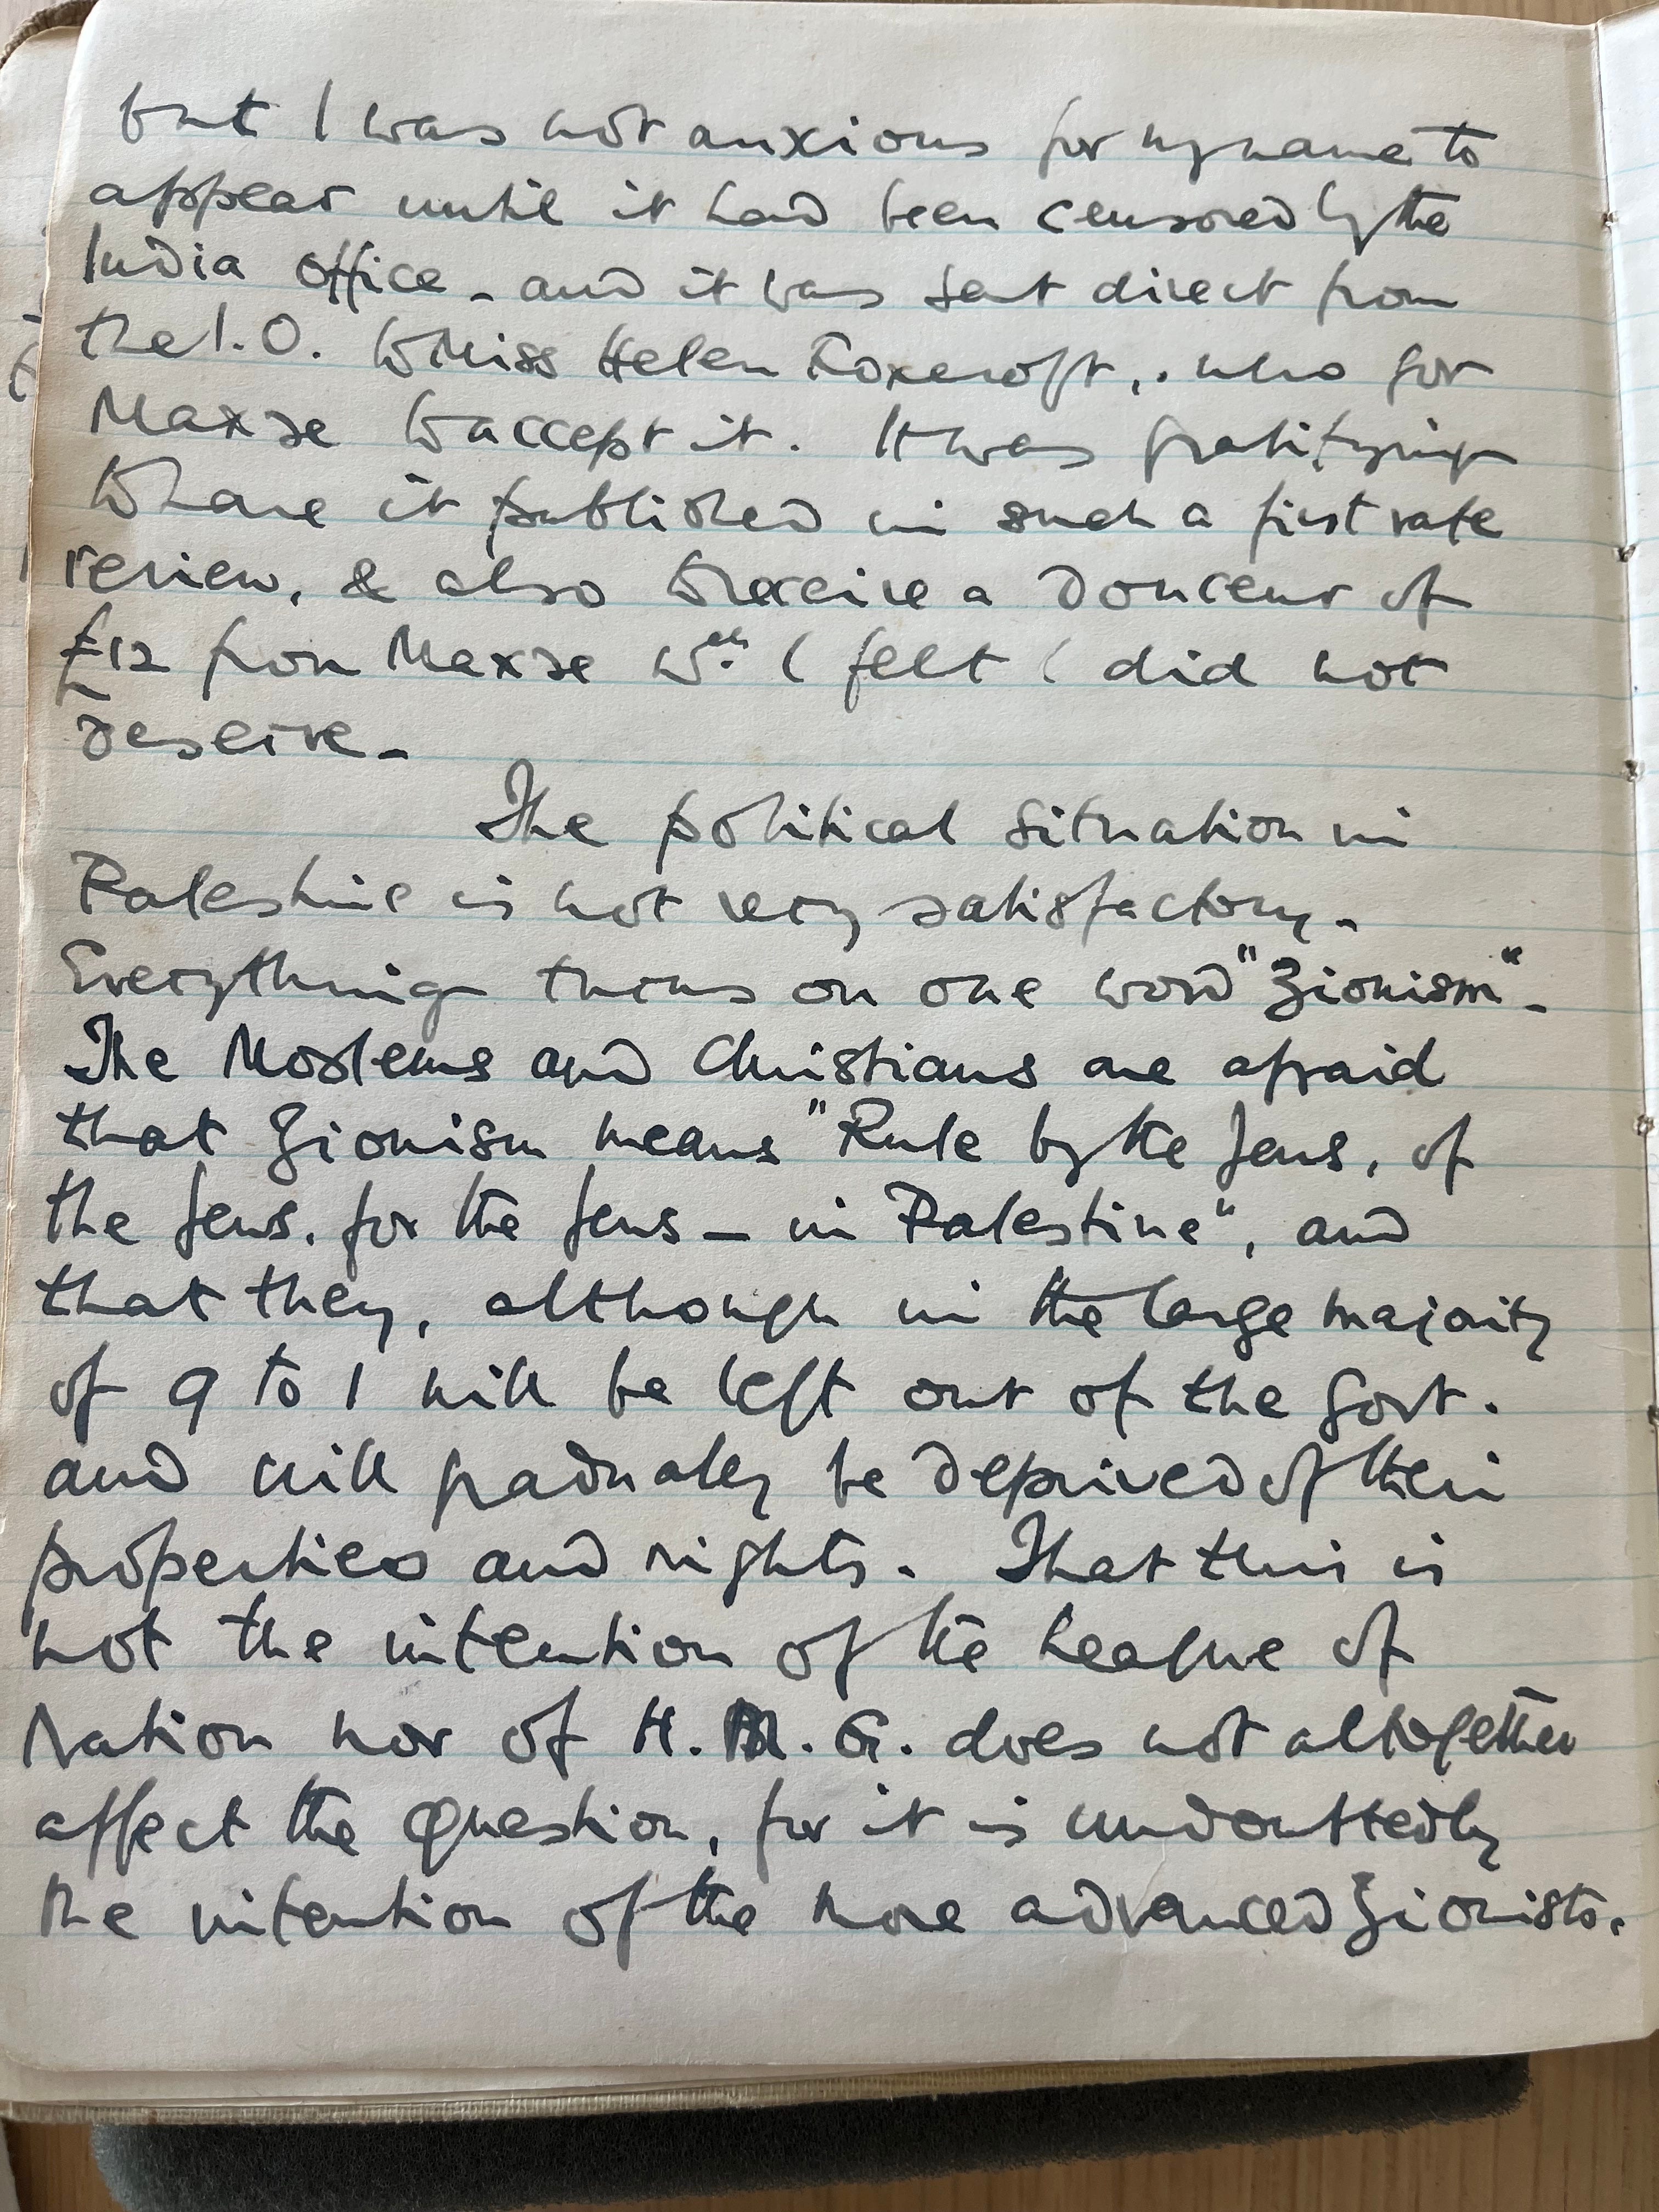 but I was not anxious for my name to
appear until it had been censored by the
India Office - and it was sent direct from
the I.O. to Miss Helen Foxcroft, . who got
Maxse to accept it. It was gratifying
to have it published in such a first rate
review, & also to receive a douceur of
£12 from Maxse wch. I felt I did not
deserve -
The political situation in
Palestine is not very satisfactory -
Everything turns on one word "Zionism" -
The Moslems and Christians are afraid
that Zionism means "Rule by the Jews, of
the Jews, for the Jews - in Palestine", and
that they, although in the large majority
of 9 to 1 will be left out of the Govt.
and will gradually be deprived of their
properties and rights. That this is
not the intention of the League of
Nation nor of H. M. G. does not altogether
affect the question, for it is undoubtedly
the intention of the more advanced Zionists.